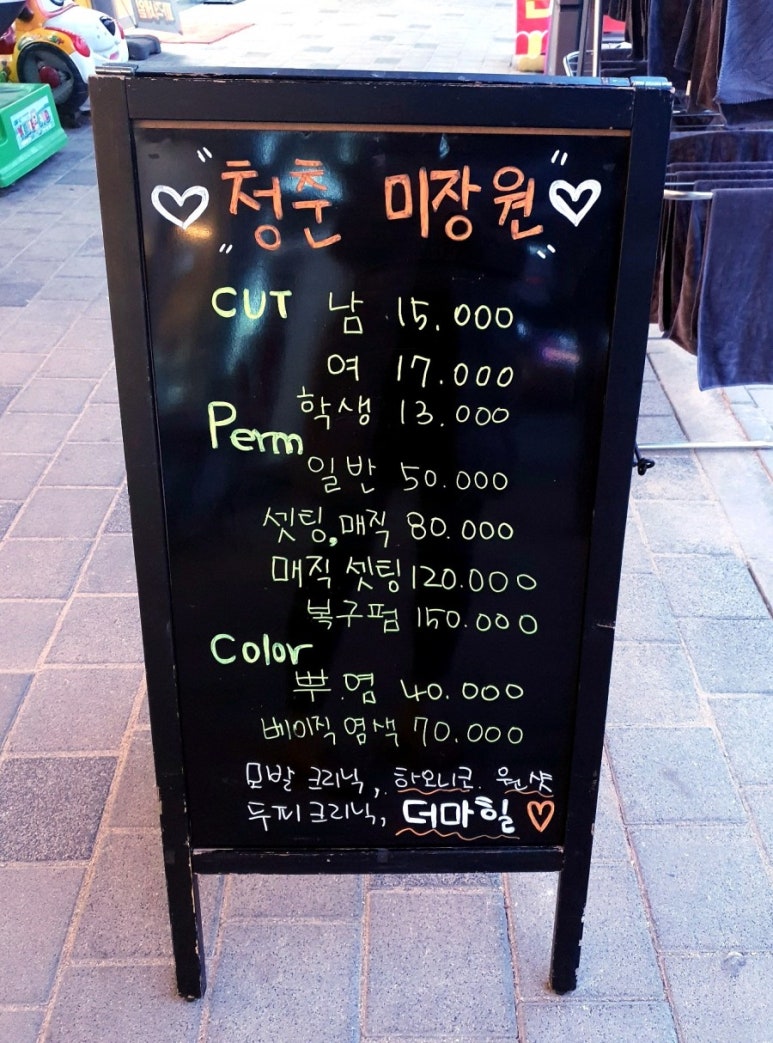 "청춘 미장원"
CUT 남 15.000
여 17.000
학생 13.000
Perm
일반 50.000
셋팅,매직 80.000
매직 셋팅 120.000
복구펌 150.000
Color
뿌.염 40.000
베이직 염색 70.000
모발 크리닉, 하오니코. 원샷
두피크리닉, 더마힐